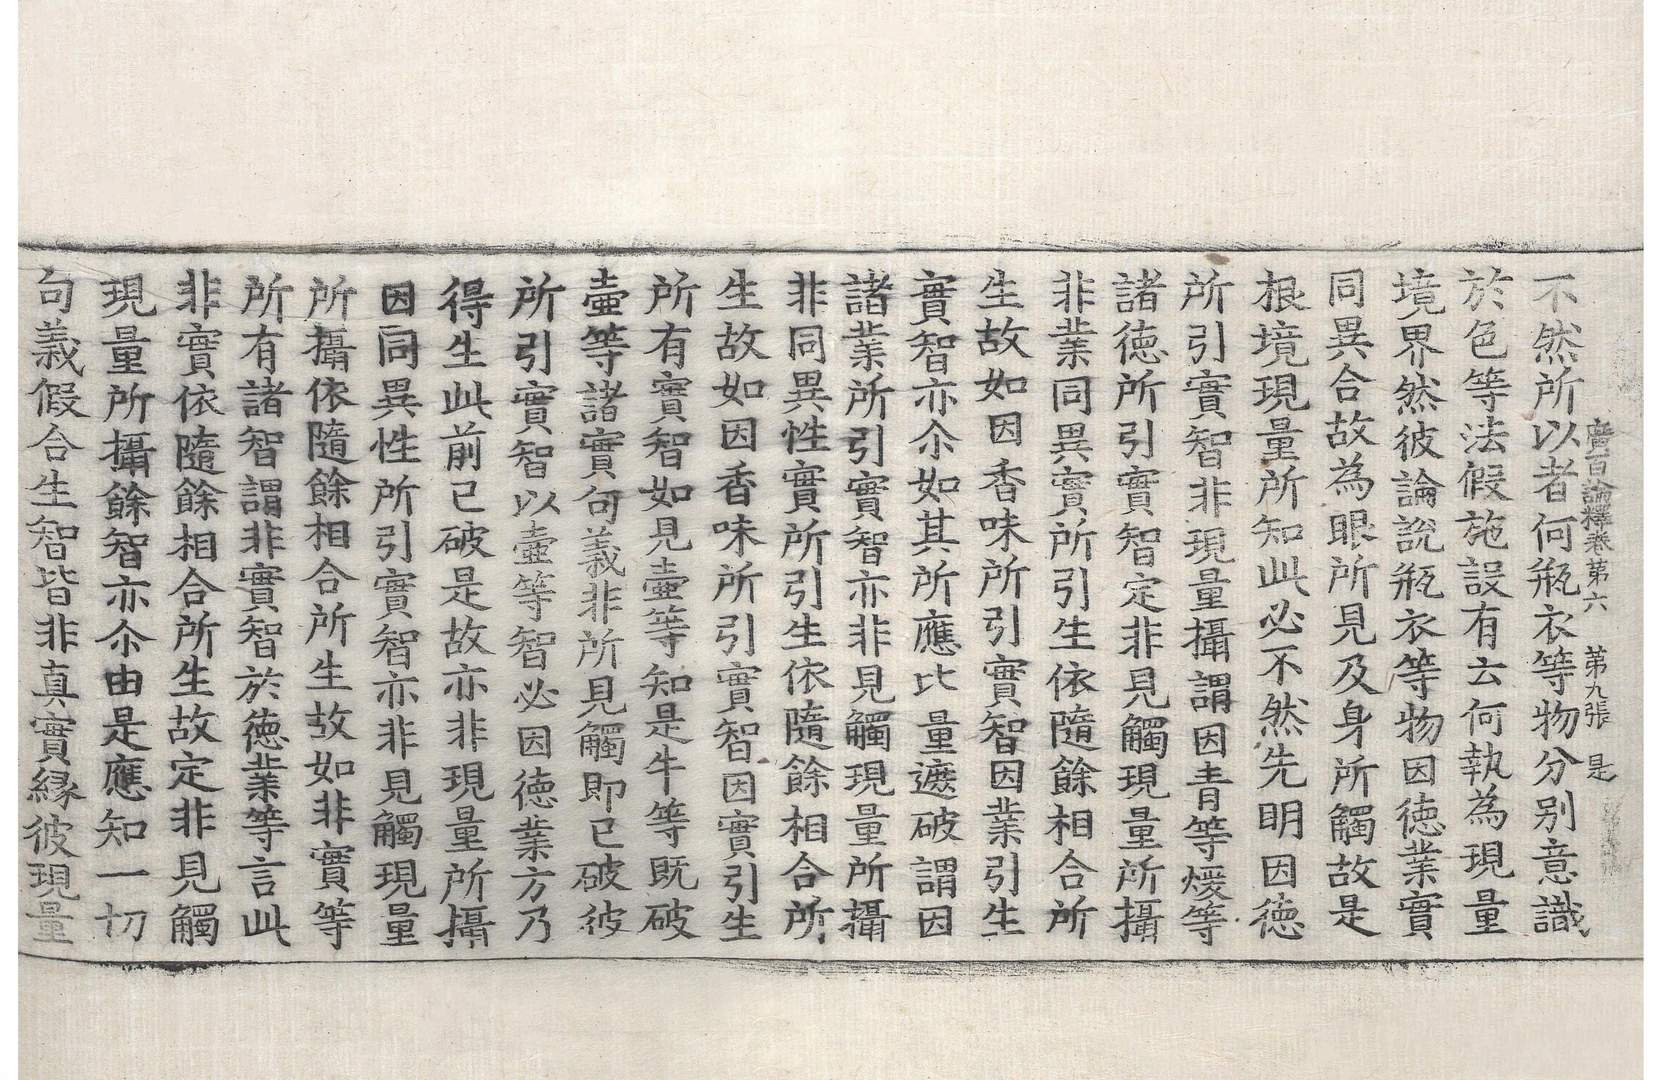 廣百論釋卷第六　第九張　是
不然所以者何瓶衣等物分别意識
於色等法假施設有云何執為現量
境界然彼論說瓶衣等物因徳業實
同異合故為眼所見及身所觸故是
根境現量所知此必不然先明因徳
所引實智非現量攝謂因青等煖等
諸徳所引實智定非見觸現量所攝
非業同異實所引生依隨餘相合所
生故如因香味所引實智因業引生
實智亦尒如其所應比量遮破謂因
諸業所引實智亦非見觸現量所攝
非同異性實所引生依隨餘相合所
生故如因香味所引實智因實引生
所有實智如見壷等知是牛等既破
壷等諸實句義非所見觸即已破彼
所引實智以壷等智必因徳業方乃
得生此前已破是故亦非現量所攝
因同異性所引實智亦非見觸現量
所攝依隨餘相合所生故如非實等
所有諸智謂非實智於徳業等言此
非實依隨餘相合所生故定非見觸
現量所攝餘智亦尒由是應知一切
句義假合生智皆非真實縁彼現量